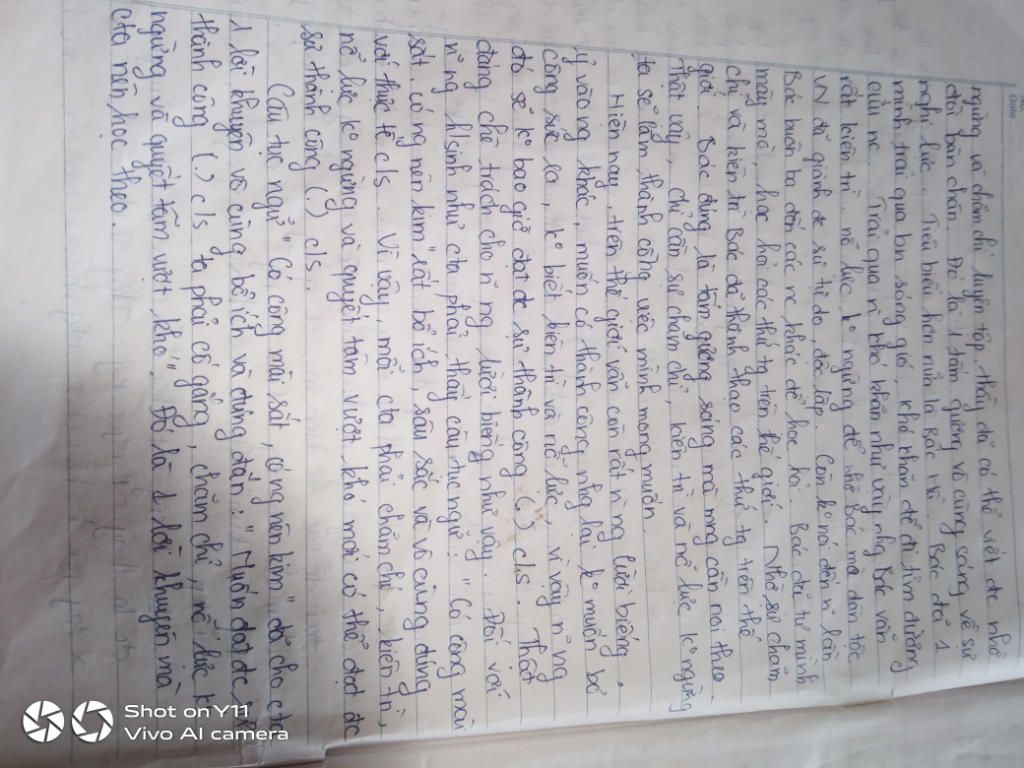 ngừng và chăm chỉ luyện tập thầy đã có thể viết đc nhờ
đôi bàn chân. Đó là 1 tấm gương vô cùng sáng về sự
nghị lực. Tiêu biểu hơn nữa là Bác Hồ. Bác đã 1
mình trải qua bn sóng gió, khó khăn để đi tìm đường
cứu nc. Trải qua n~ khó khăn như vậy nhg Bác vẫn
rất kiên trì, nỗ lực ko ngừng để nhờ Bác mà dân tộc
VN đã giành đc sự tự do, độc lập. Còn kể nói đến n~ lần
Bác buôn ba đến các nc khác để học hỏi. Bác đã tự mình
mày mò, học hỏi các thứ tg trên thế giới. Nhờ sự chăm
chỉ và kiên trì Bác đã thành thạo các thứ tg trên thế
giới. Bác đúng là tấm gương sáng mà mng cần noi theo.
Thật vậy, chỉ cần sự chăm chỉ, kiên trì và nỗ lực ko ngừng
ta sẽ làm thành công việc mình mong muốn.
Hiện nay, trên thế giới vẫn còn rất n~ ng lười biếng,
ỷ vào ng khác, muốn có thành công nhg lại ko muốn bỏ
công sức ra, ko biết kiên trì và nỗ lực, vì vậy n~ ng
đó sẽ ko bao giờ đạt đc sự thành công (.) c/s. Thật
đáng chê trách cho n~ ng lười biếng như vậy. Đối với
n~ ng h/sinh như cta phải thấy câu tục ngữ: "Có công mài
sắt, có ng nên kim" rất bổ ích, sâu sắc và vô cùng đúng
với thực tế c/s. Vì vậy, mỗi cta phải chăm chỉ, kiên trì,
nỗ lực ko ngừng và quyết tâm vượt khó mới có thể đạt đc
sự thành công (.) c/s.
Câu tục ngữ "Có công mài sắt, có ng nên kim" đã cho cta
1 lời khuyên vô cùng bổ ích và đúng đắn: "Muốn đạt đc
thành công (.) c/s ta phải cố gắng, chăm chỉ, nỗ lực k
ngừng và quyết tâm vượt khó". Đó là 1 lời khuyên mà
cta nên học theo.
Shot on Y11
Vivo AI camera